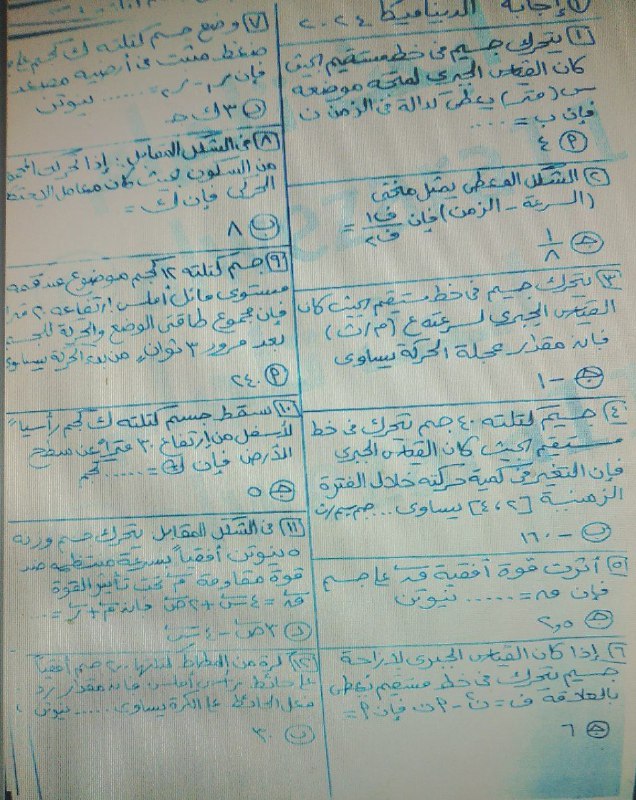 إجابة الديناميكا ٢٠٢٤
١) يتحرك جسيم في خط مستقيم بحيث
كان القياس الجبري لمتجه موضعه
س (متر) يعطى كدالة في الزمن ن
فإن ب = ....
٤ (أ)
٢) الشكل المعطى يمثل منحنى
(السرعة - الزمن) فإن ف١/ف٢ =
(ج) ١/٨
٣) يتحرك جسيم في خط مستقيم بحيث كان
القياس الجبري لسرعته ع (م/ث)
فإن مقدار عجلة الحركة يساوى
(ج) - ١
٤) جسيم كتلته ٤٠ جم يتحرك في خط
مستقيم بحيث كان القياس الجبري
فإن التغير في كمية حركته خلال الفترة
الزمنية [٢،٤] يساوى .... جم.سم/ث
(ب) - ١٦٠
٥) أثرت قوة أفقية ق على جسم
فإن ق = ..... نيوتن
(ج) ٢,٥
٦) إذا كان القياس الجبري لإزاحة
جسيم يتحرك في خط مستقيم تعطى
بالعلاقة ف = ن٢ - أ ن فإن أ =
(ج) ٦
٧) وضع جسم كتلته ك كجم على
ضغط مثبت في أرضية مصعد
فإن ر١ - ر٢ = ..... نيوتن
(د) ٣ ك حـ
٨) في الشكل المقابل: إذا تحركت
من السكون بحيث كان معامل الاحتكاك
الحركي فإن ك =
(ب) ٨
٩) جسم كتلته ١٢ كجم موضوع عند قمة
مستوى مائل أملس ارتفاعه ٢ متر
فإن مجموع طاقتي الوضع والحركة للجسم
بعد مرور ٣ ثوان من بدء الحركة يساوى
(أ) ٢٤٠
١٠) سقط جسم كتلته ك كجم رأسياً
لأسفل من ارتفاع ٣٠ متراً عن سطح
الأرض فإن ك = ..... كجم
(ج) ٥
١١) في الشكل المقابل يتحرك جسم وزنه
٥ نيوتن أفقياً بسرعة منتظمة ضد
قوة مقاومة م تحت تأثير القوة
ق = ٤ س + ٢ ص فإن م + ر = ...
(د) ٣ ص - ٤ س
١٢) كرة من المطاط كتلتها ٢٠٠ جم أفقياً
على حائط رأسي أملس فإن مقدار رد
فعل الحائط على الكرة يساوى ..... نيوتن
(ب) ٣٠